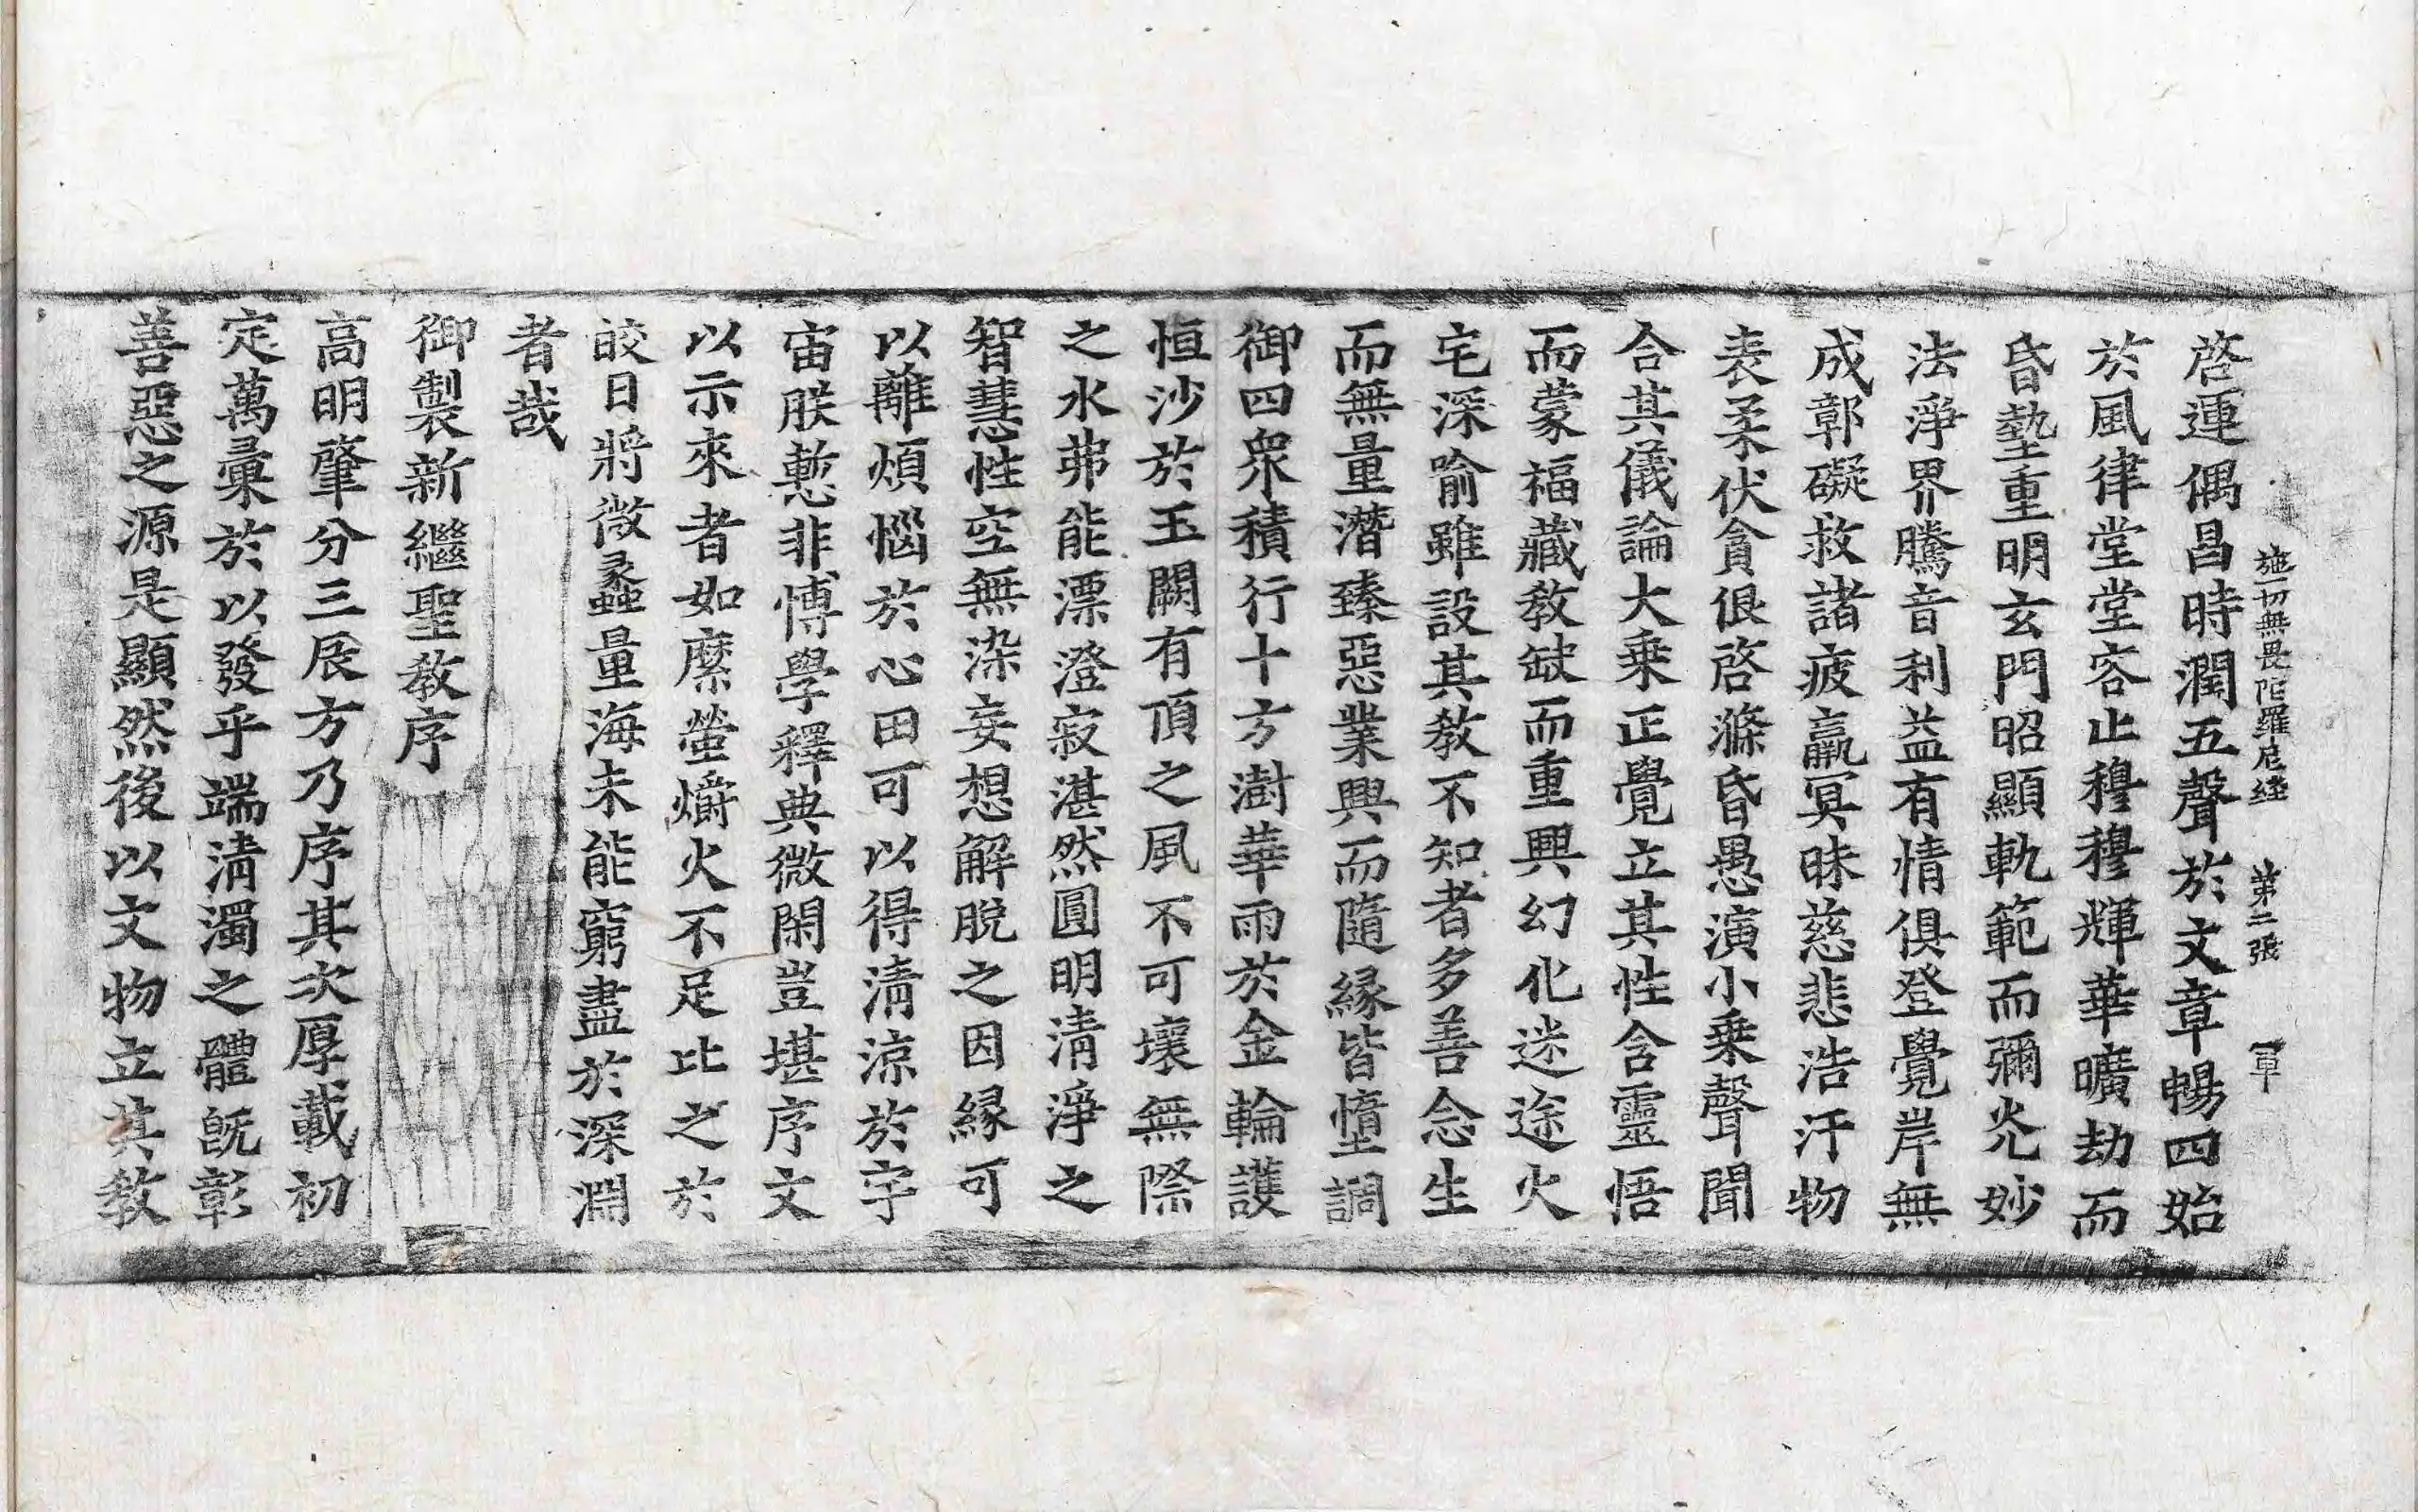 施一切無畏陀羅尼經 第二張 軍
啓運偶昌時潤五聲於文章暢四始
於風律堂堂容止穆穆輝華曠劫而
昏蟄重明玄門昭顯軌範而彌光妙
法淨界騰音利益有情俱登覺岸無
成鄣礙救諸疲羸冥昧慈悲浩汗物
表柔伏貪很啓滌昏愚演小乗聲聞
合其儀論大乗正覺立其性含靈悟
而蒙福藏教缺而重興幻化迷途火
宅深喻雖設其教不知者多善念生
而無量潛臻惡業興而隨緣皆墮調
御四衆積行十方澍華雨於金輪護
恒沙於玉闕有頂之風不可壞無際
之水弗能漂澄寂湛然圓明清淨之
智慧性空無染妄想解脫之因緣可
以離煩惱於心田可以得清涼於宇
宙朕慙非博學釋典微閑豈堪序文
以示來者如縻螢爝火不足比之於
皎日將微蠡量海未能窮盡於深淵
者哉
御製新繼聖教序
高明肇分三辰方乃序其次厚載初
定萬彙於以發乎端清濁之體旣彰
善惡之源是顯然後以文物立其教